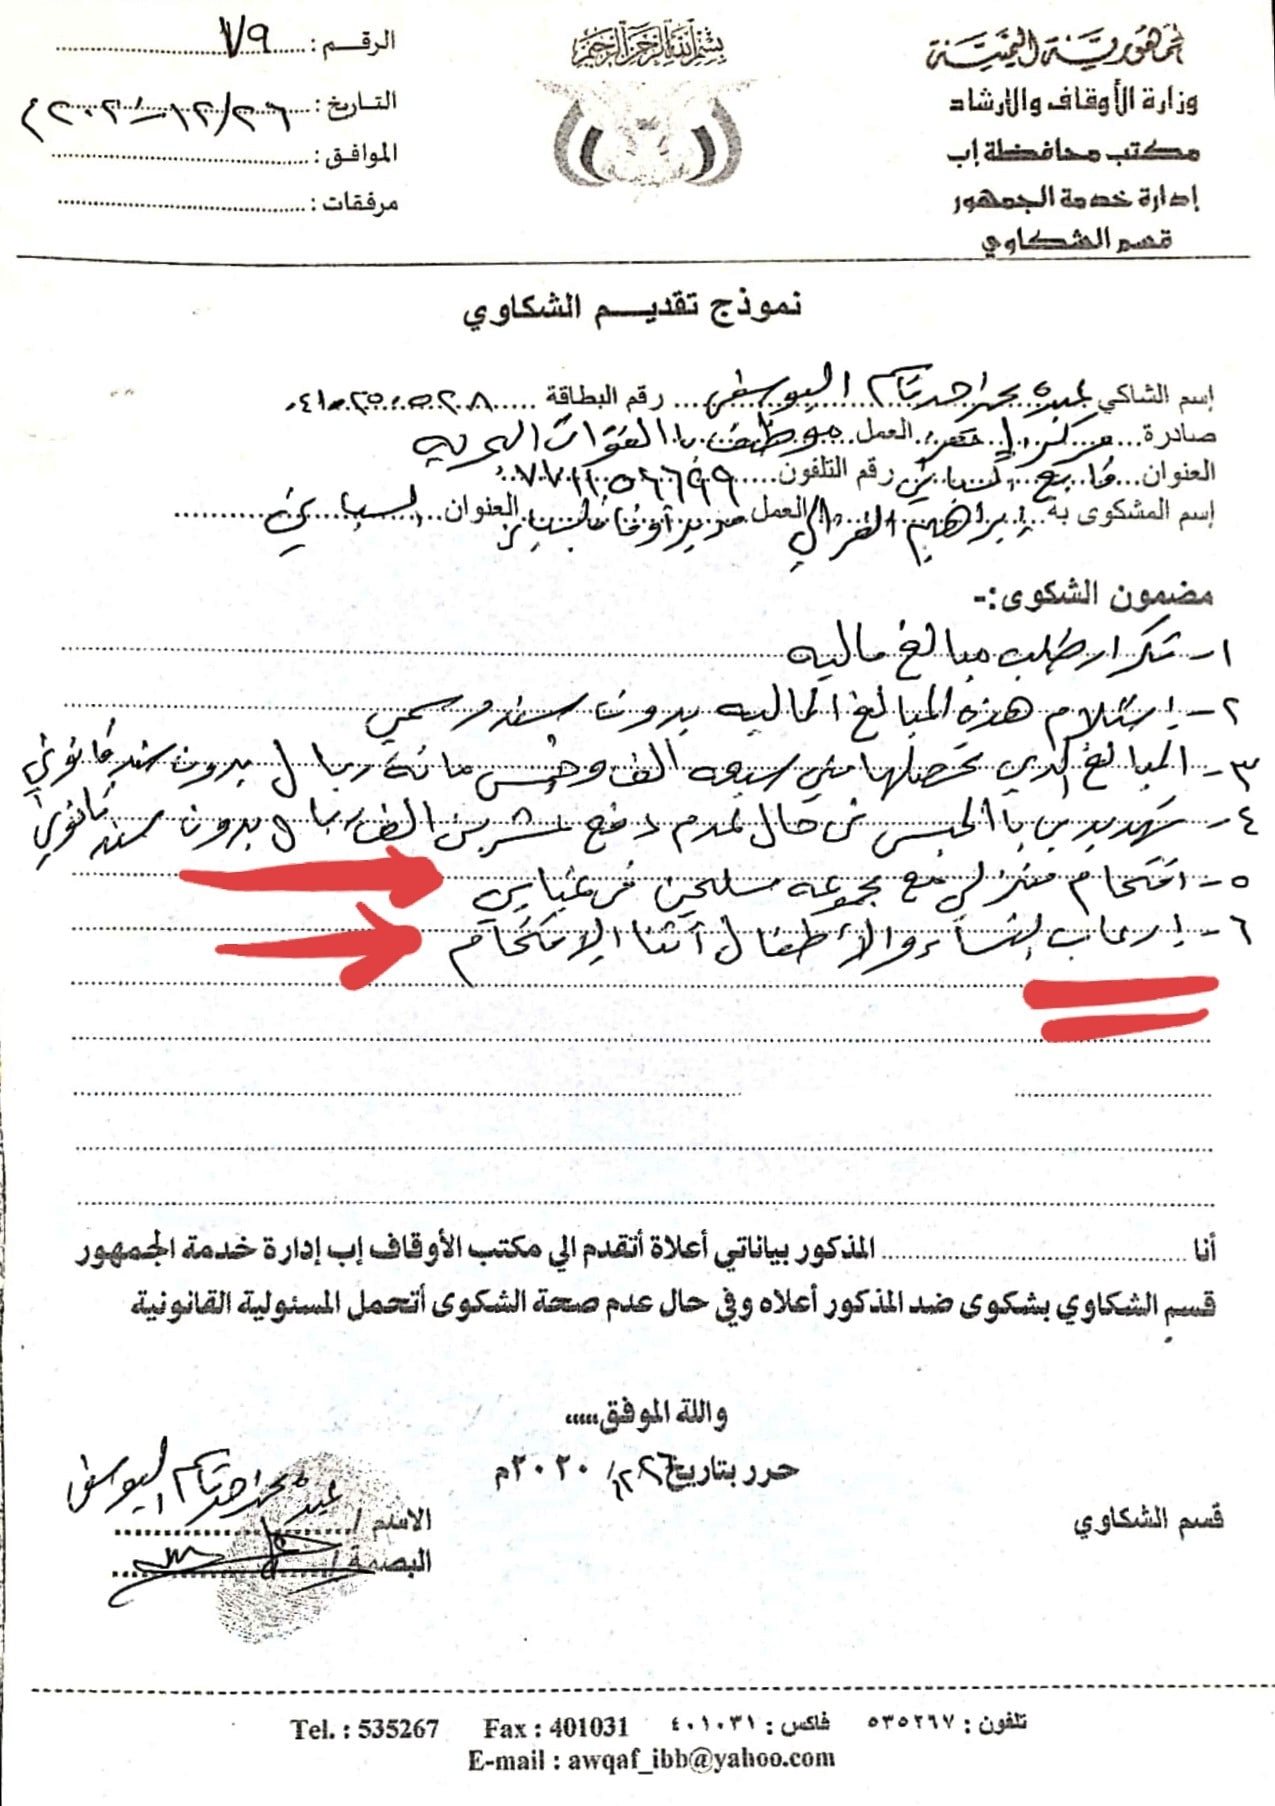 الجمهورية اليمنية
وزارة الأوقاف والارشاد
مكتب محافظة إب
إدارة خدمة الجمهور
قسم الشكاوي
بسم الله الرحمن الرحيم
الرقم : ٧٩
التاريخ : ٢٦/١٢/٢٠٢٠م
الموافق :
مرفقات :
نموذج تقديم الشكاوي
إسم الشاكي عبده محمد احمد قاسم اليوسفي رقم البطاقة
صادرة مركز العمل موظف با القوات البحريه
العنوان السياني رقم التلفون
إسم المشكوى به إبراهيم العمل مدير أوقاف السياني العنوان السياني
مضمون الشكوى:-
١- تكرار طلب مبالغ ماليه
٢- إستلام هذه المبالغ الماليه بدون سند رسمي
٣- المبالغ الذي تحصلها مني سبعه الف وخمس مائة ريال بدون سند قانوني
٤- تهديدي با الحبس في حال عدم دفع عشرين الف ريال بدون سند قانوني
٥- اقتحام منزلي مع مجموعه مسلحين في غيابي
٦- إرعاب النساء والأطفال أثنا الإقتحام
أنا المذكور بياناتي أعلاة أتقدم الي مكتب الأوقاف إب إدارة خدمة الجمهور
قسم الشكاوي بشكوى ضد المذكور أعلاه وفي حال عدم صحة الشكوى أتحمل المسئولية القانونية
والله الموفق.....
حرر بتاريخ ٢٦/١٢/٢٠٢٠م
قسم الشكاوي
الاسم / عبده محمد احمد قاسم اليوسفي
البصمة /
تلفون : ٥٣٥٢٦٧ فاكس : ٤٠١٠٣١ Fax : 401031 Tel. : 535267
E-mail : awqaf_ibb@yahoo.com